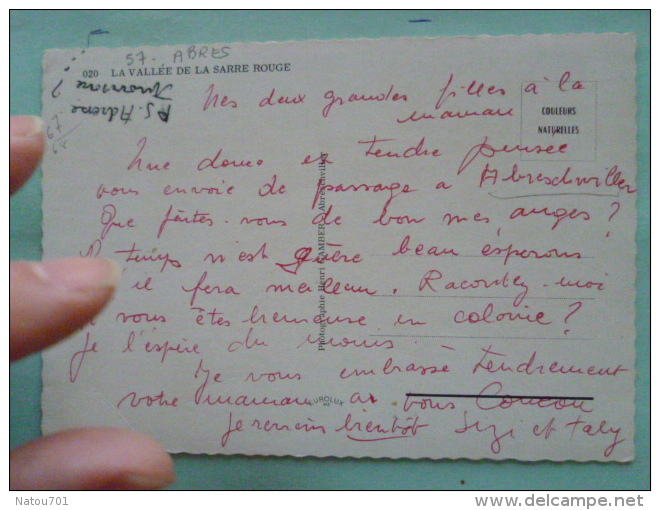 57.. ABRES
020 LA VALLÉE DE LA SARRE ROUGE
COULEURS
NATURELLES
Mes deux grandes filles à la
maman
Une douce et tendre pensée
vous envoie de passage a Abreschwiller
Que faites-vous de bon mes anges?
temps n'est guère beau espérons
il fera meilleur. Racontez-moi
vous êtes heureuse en colonie?
Je l'espère du moins
Je vous embrasse tendrement
votre maman
vous Coucou
je reviens bientôt Suzi et Taly
Photographie Henri Abreschviller
EUROLUX
Natou701